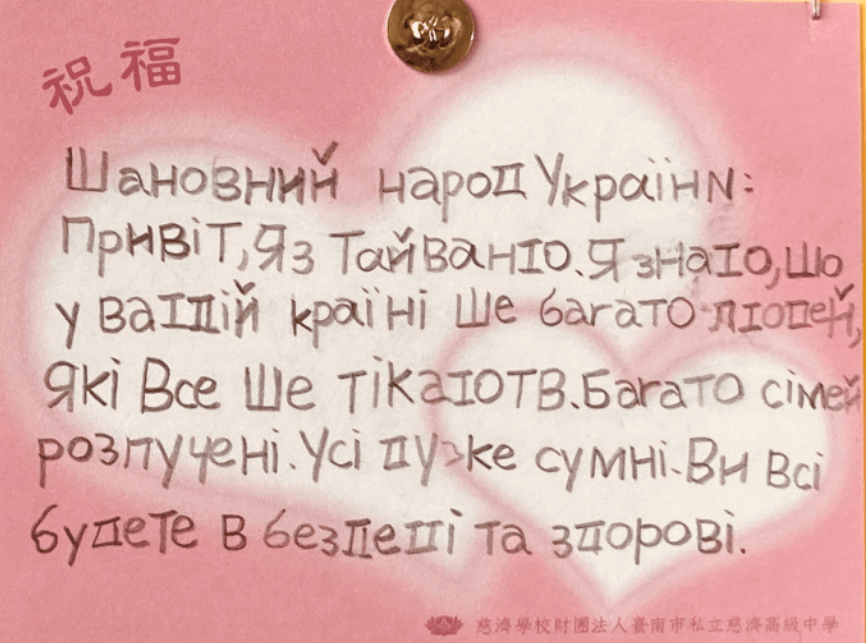 祝福
Шановний народ України:
Привіт, Я з Тайваню. Я знаю, шо
у вашій країні ше багато людей,
які Все ше тікають. Багато сімей
розлучені. Усі дуже сумні. Ви всі
будете в безпеці та здорові.
慈濟學校財團法人臺南市私立慈濟高級中學